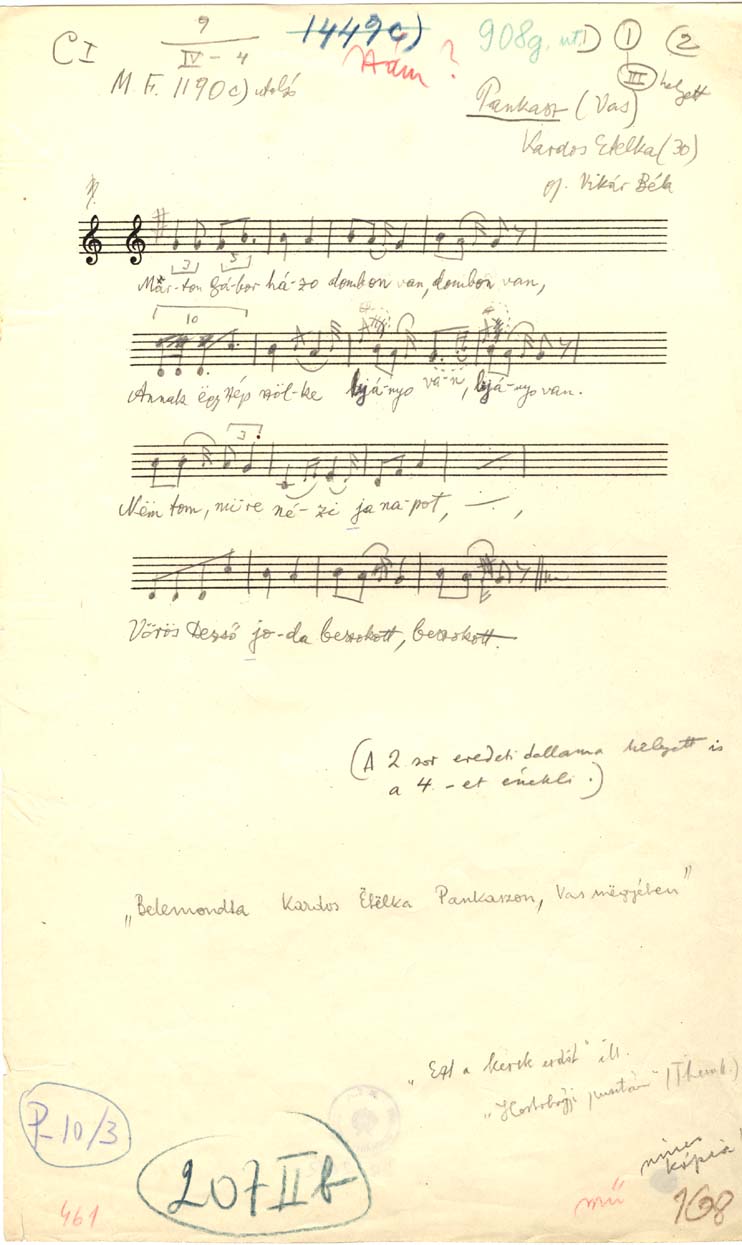 C I
9
IV - 4
1449c)
908g. ut.
1) 1 2
M. F. 1190c) utolsó
Ádám ?
III helyett
Pankasz (Vas)
Kardos Etelka (30)
gy. Vikár Béla
3 5
Már-ton Gá-bor há-zo dombon van, dombon van,
10
Annak ëgy szép szöl-ke lyjá-nyo va-n, lyjá-nyo van.
3
Nëm tom, mire né-zi ja na-pot, -·-,
Vörös Dezső jo-da beszokott, beszokott.
(A 2 sor eredeti dallama helyett is
a 4.-et énekli.)
„Belemondta Kardos Ëtëlka Pankaszon, Vas mëgyjében"
„Ezt a kerek erdőt" ill.
„Hortobágyi pusztán" (Themat.)
P-10/3
207 II b
nincs
kópia!
461
mű
168